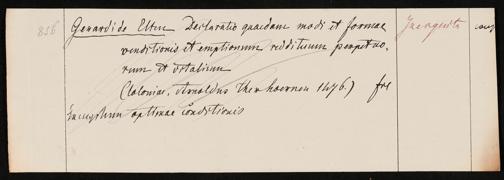 856 Gerardi de Elten Declaratio quaedam modi et formae
venditionis et emptionum reddituum perpetuo-
rum et vitalium
(Coloniae, Arnoldus ther hoernen 1476.) fol
Exemplum optimae conditionis